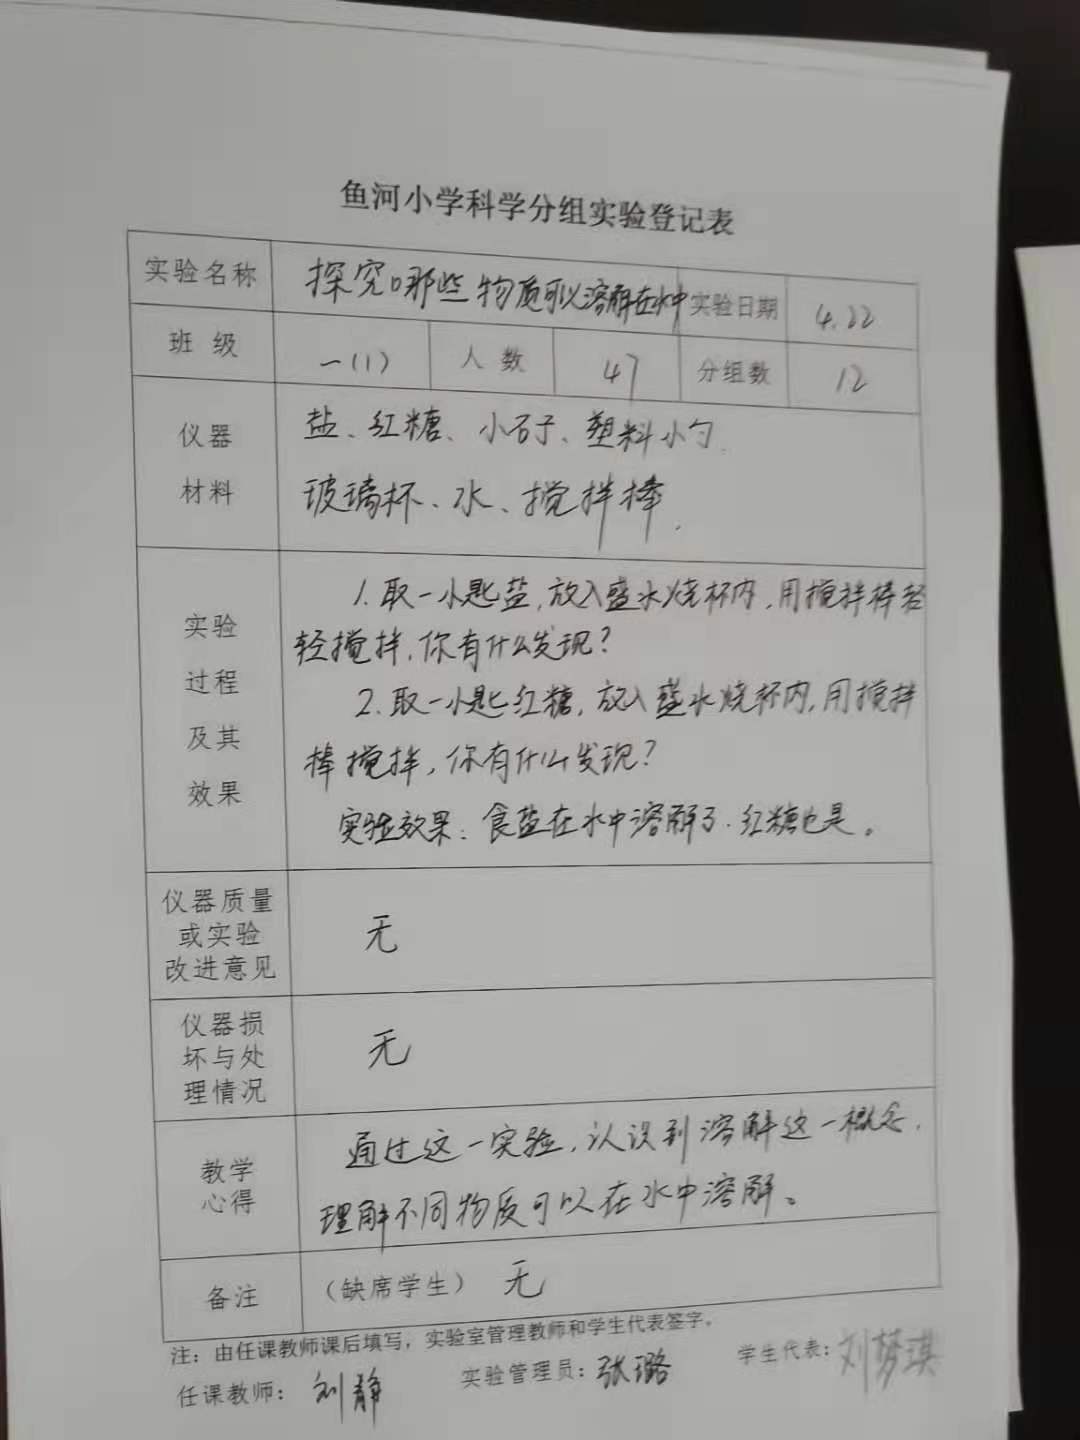 鱼河小学科学分组实验登记表
实验名称 探究哪些物质可以溶解在水中 实验日期 4.22
班 级 一(1) 人 数 47 分组数 12
仪器
材料
盐、红糖、小石子、塑料小勺
玻璃杯、水、搅拌棒.
实验
过程
及其
效果
1.取一小匙盐,放入盛水烧杯内,用搅拌棒轻
轻搅拌,你有什么发现?
2.取一小匙红糖,放入盛水烧杯内,用搅拌
棒搅拌,你有什么发现?
实验效果:食盐在水中溶解了.红糖也是。
仪器质量
或实验
改进意见
无
仪器损
坏与处
理情况
无
教学
心得
通过这一实验,认识到溶解这一概念,
理解不同物质可以在水中溶解。
备注 (缺席学生) 无
注:由任课教师课后填写,实验室管理教师和学生代表签字。
任课教师: 刘静 实验管理员:张璐 学生代表:刘梦琪